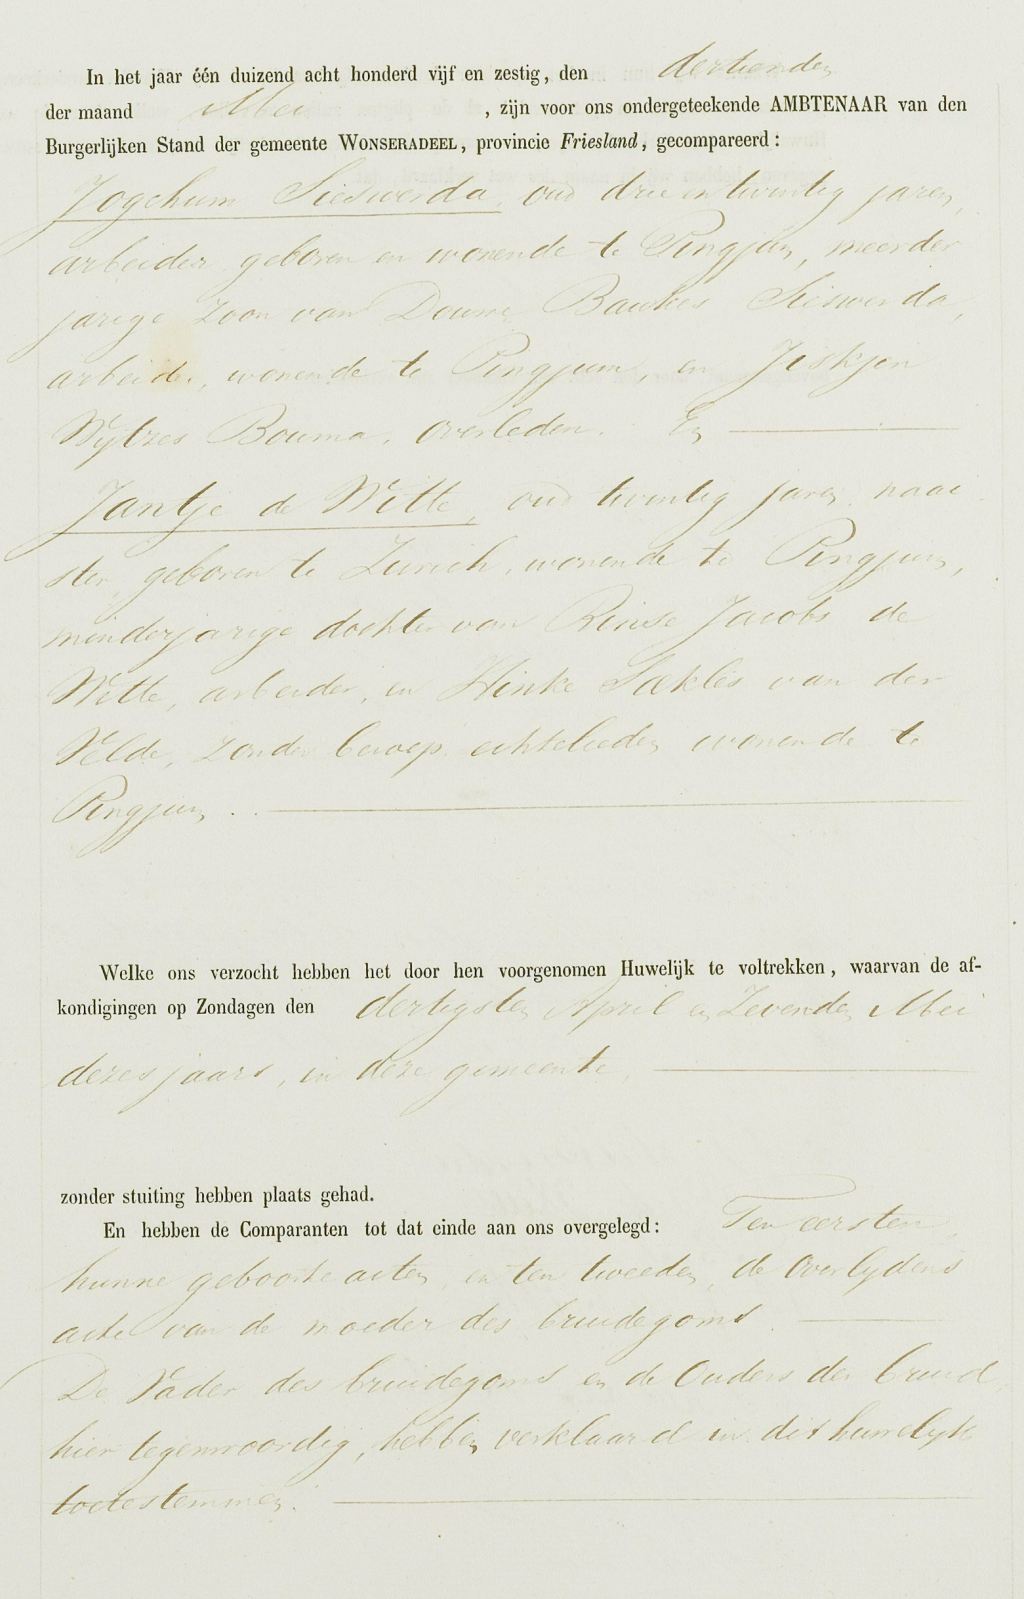 In het jaar één duizend acht honderd vijf en zestig, den dertienden
der maand Mei , zijn voor ons ondergeteekende AMBTENAAR van den
Burgerlijken Stand der gemeente WONSERADEEL, provincie Friesland, gecompareerd:
Jogchum Sieswerda, oud drie en twintig jaren,
arbeider, geboren en wonende te Pingjum, meerder
jarige zoon van Douwe Baukes Sieswerda,
arbeider, wonende te Pingjum, en Jiskjen
Wytzes Bouma, overleden. En
Jantje de Witte, oud twintig jaren naai
ster, geboren te Zurich, wonende te Pingjum,
minderjarige dochter van Rinse Jacobs de
Witte, arbeider, en Hinke Sakles van der
Velde, zonder beroep, echtelieden wonende te
Pingjum.
Welke ons verzocht hebben het door hen voorgenomen Huwelijk te voltrekken, waarvan de af-
kondigingen op Zondagen den dertigsten April en Zevenden Mei
dezes jaars, in deze gemeente,
zonder stuiting hebben plaats gehad.
En hebben de Comparanten tot dat einde aan ons overgelegd: Ten eersten,
hunne geboorte acten, en ten tweeden, de overlydens
acte van de moeder des bruidegoms.
De Vader des bruidegoms en de Ouders der bruid,
hier tegenwoordig, hebben verklaard in dit huwelyk
toetestemmen.